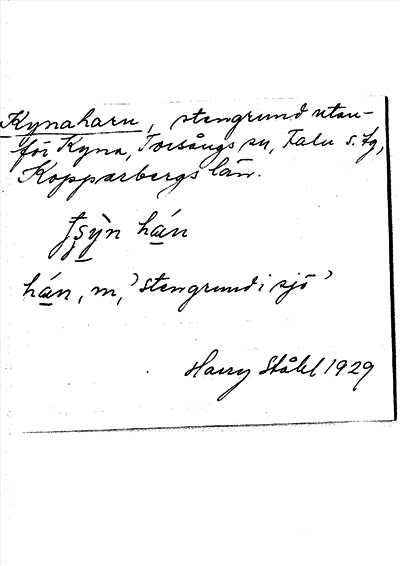 Kynaharu, stengrund utan-
för Kyna, Torsångs sn, Falu s. tg,
Kopparbergs län.
hán
hán, m, 'stengrund i sjö'
Harry Ståhl 1929